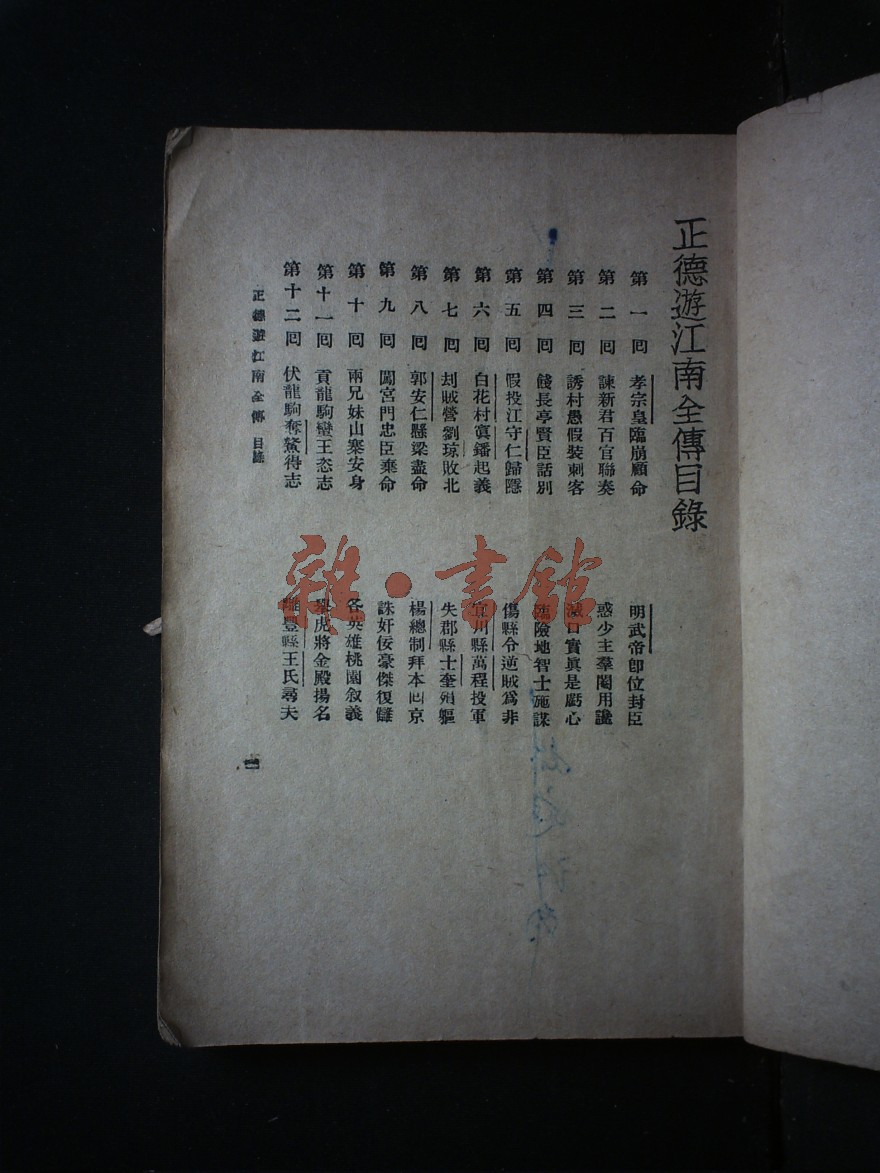 正德遊江南全傳目錄
第一囘 孝宗皇臨崩顧命 明武帝卽位封臣
第二囘 諫新君百官聯奏 惑少主羣閹用讒
第三囘 誘村愚假裝刺客 滅口實眞是虧心
第四囘 餞長亭賢臣話別 臨險地智士施謀
第五囘 假投江守仁歸隱 傷縣令逆賊爲非
第六囘 白花村寘鐇起義 宜川縣萬程投軍
第七囘 刦賊營劉琼敗北 失郡縣士奎殞軀
第八囘 郭安仁懸梁盡命 楊總制拜本囘京
第九囘 闖宮門忠臣棄命 誅奸佞豪傑復讎
第十囘 兩兄妹山寨安身 各英雄桃園叙義
第十一囘 貢龍駒蠻王恣志 擧虎將金殿揚名
第十二囘 伏龍駒奪鰲得志 離豐縣王氏尋夫
正德遊江南全傳 目錄
一
雜·書館